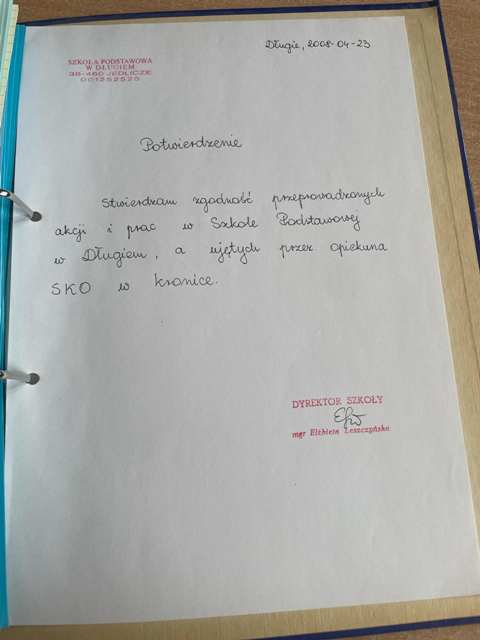 Długie, 2008-04-23
SZKOŁA PODSTAWOWA
W DŁUGIEM
38-460 JEDLICZE
001252525
Potwierdzenie
Stwierdzam zgodność przeprowadzonych
akcji i prac w Szkole Podstawowej
w Długiem, a ujętych przez opiekuna
SKO w kronice.
DYREKTOR SZKOŁY
mgr Elżbieta Leszczyńska